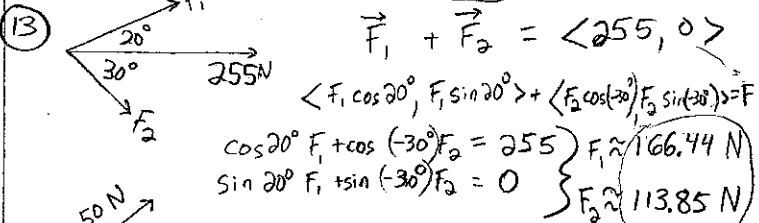 13
20°
30°
255N
F₂
F⃗₁ + F⃗₂ = <255, 0>
<F₁ cos20°, F₁ sin20°> + <F₂cos(-30°), F₂ sin(-30°)> = F
cos20° F₁ + cos (-30°)F₂ = 255
sin 20° F₁ + sin (-30°)F₂ = 0
F₁ ≈ 166.44 N
F₂ ≈ 113.85 N
50 N